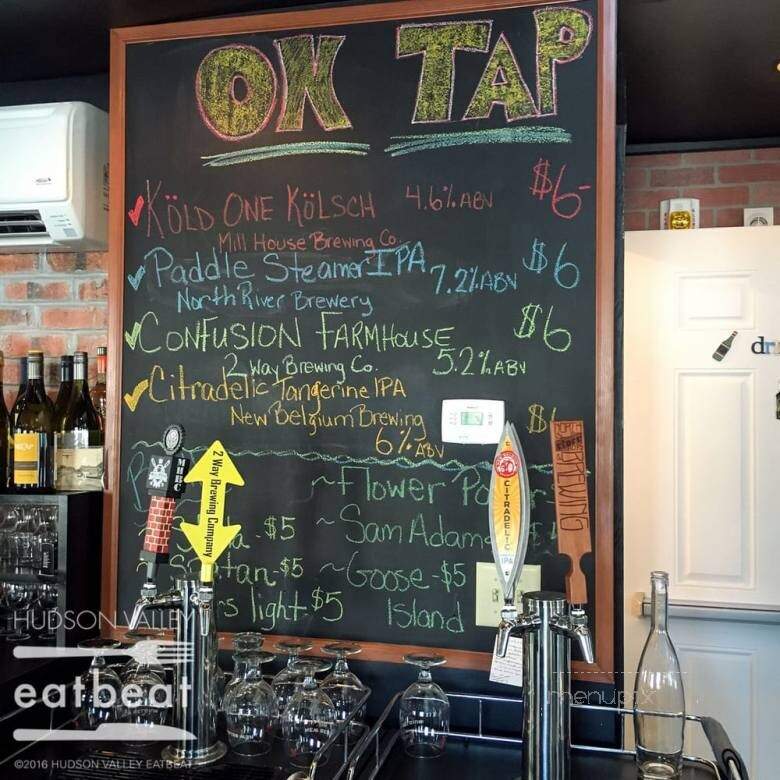 ON TAP
KÖLD ONE KÖLSCH 4.6% ABV $6-
Mill House Brewing Co.
Paddle Steamer IPA 7.2% ABV $6
North River Brewery
CONFUSION FARMHOUSE $6
2 Way Brewing Co. 5.2% ABV
Citradelic Tangerine IPA
New Belgium Brewing
6% ABV
~Flower
$5 ~Sam Adam
$5 ~Goose-$5
light-$5 Island
MHBC
2 Way Brewing Company
CITRADELIC
IPA
BREWING
HUDSON VALLEY
eatbeat
©2016 HUDSON VALLEY EATBEAT
menupix